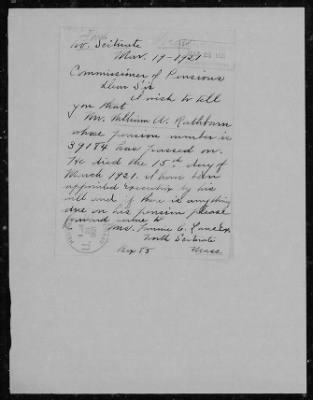 No. Scituate
Mar. 19-1921
Commissioner of Pensions
Dear Sir
I wish to tell
you that
Mr. William W. Rathburn
whose pension number is
39184 has passed on.
He died the 15th day of
March 1921. I have been
appointed executrix by his
will and if there is anything
due on his pension please
forward same to
Mrs. Fannie E.
North Scituate
Box 85 Mass